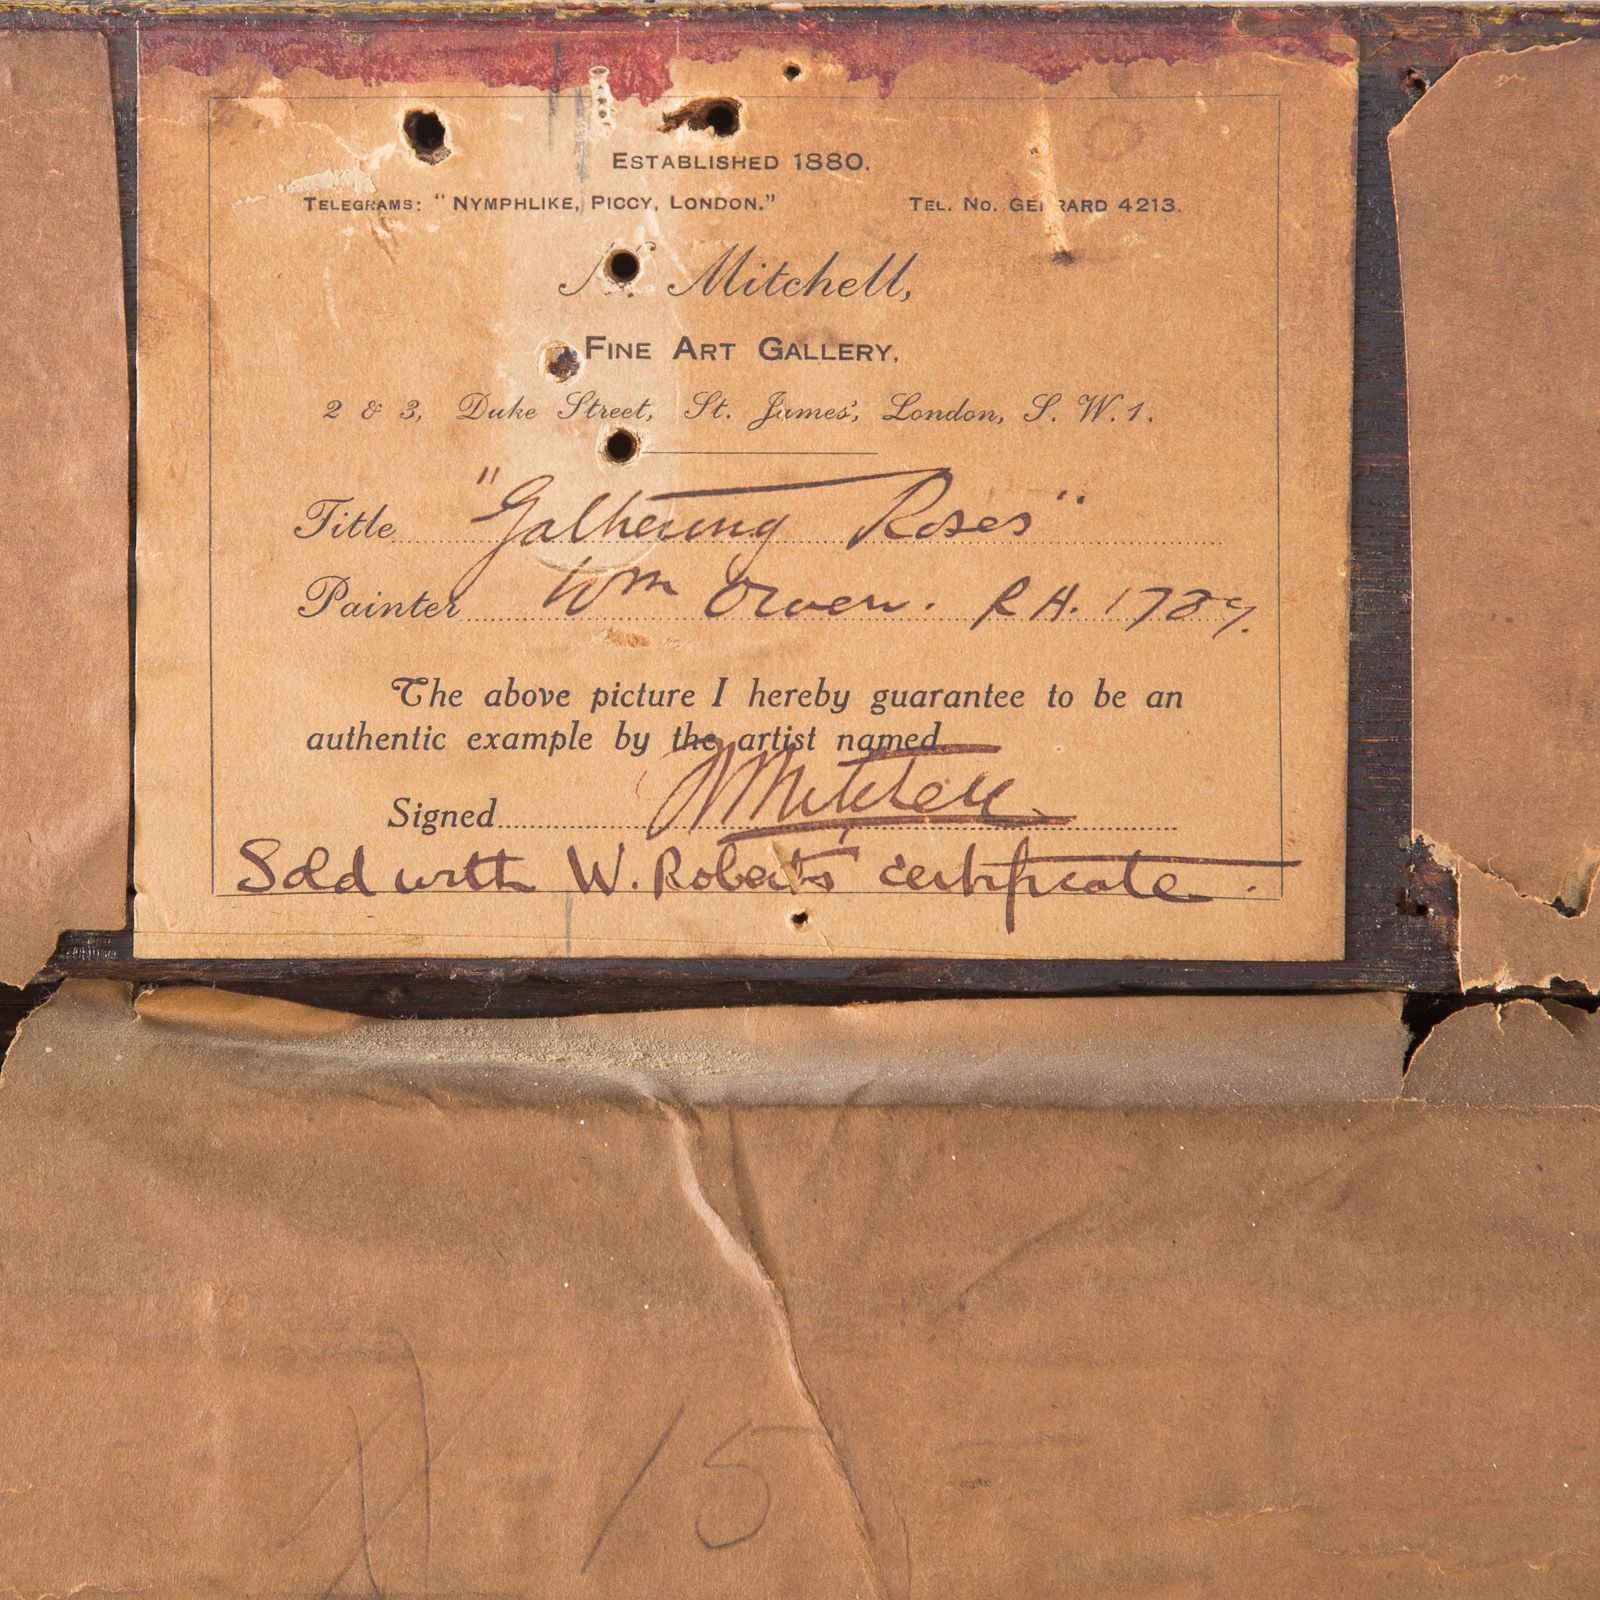 ESTABLISHED 1880.
TELEGRAMS: "NYMPHLIKE, PICCY, LONDON." TEL. NO. GERRARD 4213.
Mitchell,
FINE ART GALLERY,
2 & 3, Duke Street, St. James', London, S. W. 1.
Title "Gathering Roses"
Painter Wm Owen. R A. 1789.
The above picture I hereby guarantee to be an
authentic example by the artist named.
Signed N Mitchell
Sold with W. Roberts' certificate.
15